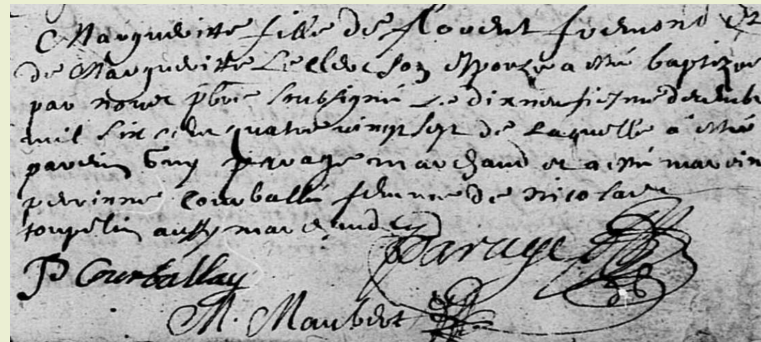 Margueritte fille de florent fremond et
de Margueritte Leclerc son espouze a esté baptizee
par nous pbre soubsigné Le dixneufiesme decembre
mil six cens quatre vingt sept de Laquelle a esté
parein Guy parage marchand et a esté mareine
perrinne Courballé femme de nicolas
toupelin aussy marchand
Parage
P Courballay
M. Maubert